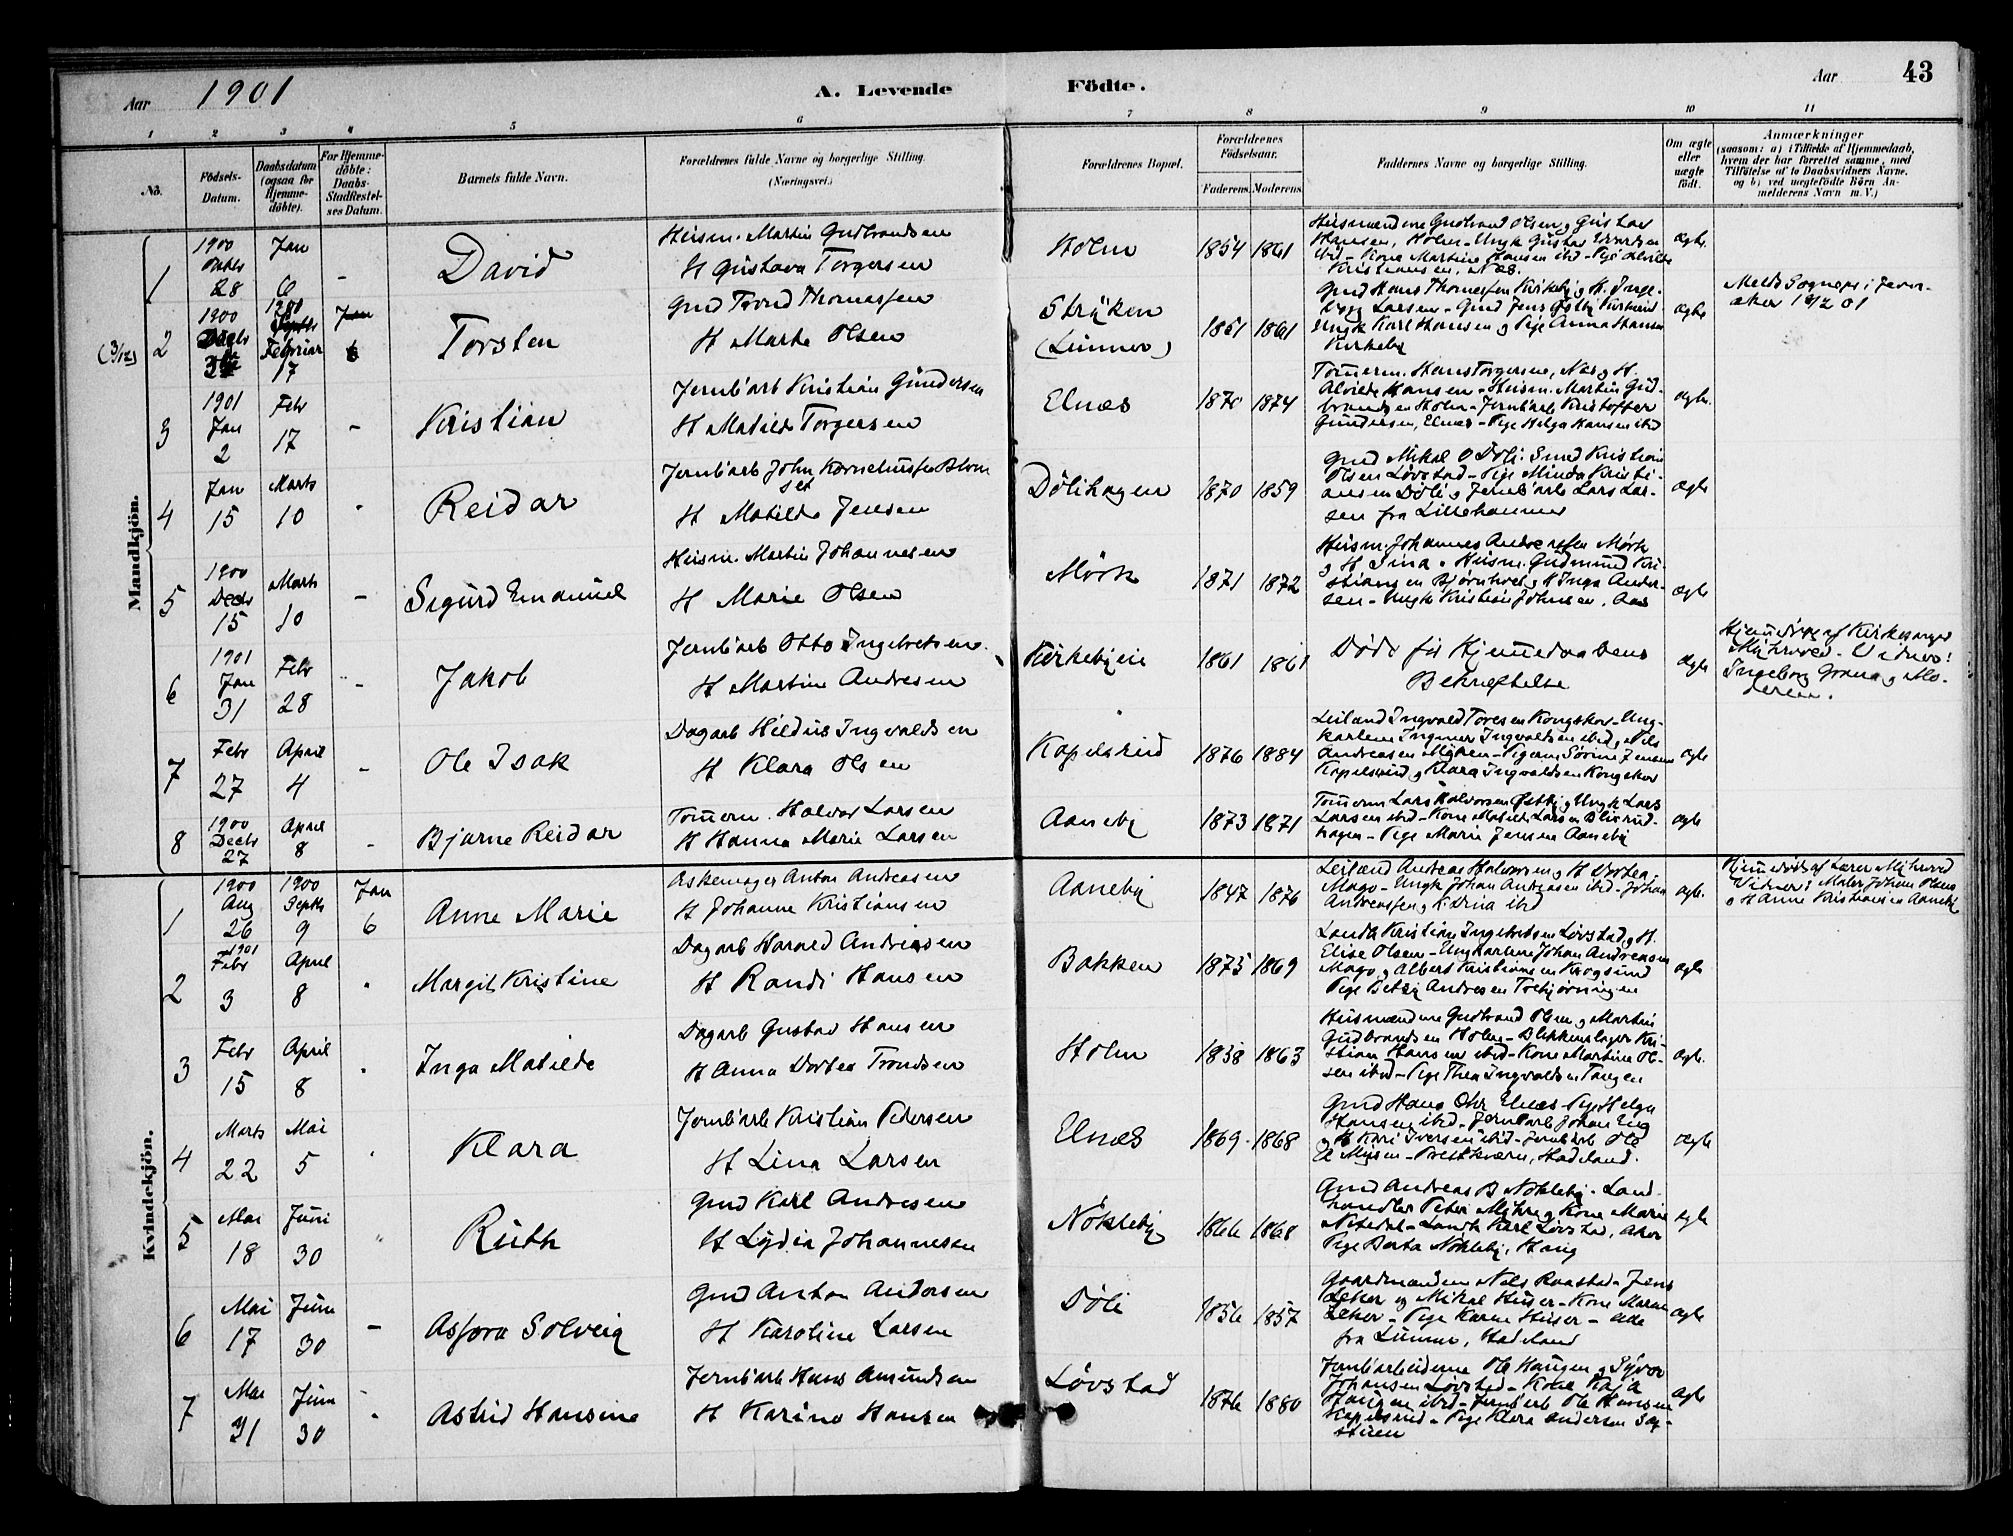 Aar 1901 A. Levende Födte. Aar 43
1 2 3 4 5 6 7 8 9 10 11
No. Födsels-Datum. Daabsdatum (ogsaa for Hjemmedöbte). For Hjemmedöbte: Daabs-Stadfestelses Datum. Barnets fulde Navn. Forældrenes fulde Navne og borgerlige Stilling. (Næringsvei.) Forældrenes Bopæl. Forældrenes Födselsaar. Faderens. Moderens. Faddernes Navne og borgerlige Stilling. Om ægte eller uægte födt. Anmærkninger (saasom: a) i Tilfælde af Hjemmedaab, hvem der har forrettet samme, med Tilföielse af to Daabsvidners Navne, og b) ved uægtefödte Börn Anmelderens Navn m. V.)
Mandkjön.
1 1900 Oktbr 28 Jan 6 - David Husm. Martin Gudbrandsen
H Gustava Torgersen Holm 1854 1861 Husmændene Gudbrand Olsen og Gustav
Hansen, Holm - Ungk Gustav
ibid - Kone Martine Hansen ibid - Pige Alvilde
Kristiansen, Næs. ægte.
(3/12) 2 1900 Februar 17 Torsten Gmd Trond Thomassen
H Marte Olsen Stryken
(Lunner) 1851 1861 Gmd Hans Thomassen Kirkeby og K. Inge-
borg Larsen - Gmd Jens Østby
Ungk Karl Hansen og Pige Anna Hansen
Kirkeby ægte Meldt Sognepr i Jevn-
aker 19/2 01
3 1901 Jan 2 Febr 17 - Kristian Jernb'arb Kristian Gundersen
H Matilde Torgersen Elnæs 1870 1874 Tømmerm. Hans Torgersen, Næs og H.
Alvilde Hansen - Husm. Martin Gud-
brandsen Holm - Jernb'arb Kristoffer
Gundersen, Elnæs - Pige Helga Hansen ibid ægte.
4 Jan 15 Marts 10 Reidar Jernb'arb John Korneliussen Blom
set
H Matilde Jensen Dølihagen 1870 1859 Gmd Mikal O Døli Smed Kristian
Olsen Løvstad - Pige Minda Kristi-
ansen Døli og Jernb'arb Lars Lar-
sen fra Lillehammer ægte
5 1900 Decbr 15 Marts 10 - Sigurd Emanuel Husm. Martin Johannesen
H Marie Olsen Mørk 1871 1872 Husm. Johannes Andreassen Mørk
og H Lina - Husm. Gudmund Kri-
stiansen og H Inga Ander-
sen - Ungk Kristian Johnsen, Aas ægte
6 1901 Jan 31 Febr 28 - Jakob Jernb'arb Otto Ingebretsen
H Martine Andresen Kirkebyeie 1861 1861 Døde før Hjemmedaabens
Bekræftelse ægte Hjemmedøbt af Kirkesanger
Myhrvold - Vidner:
Ingeborg Grana og Mo-
deren.
7 Febr 27 April 4 - Ole Isak Dagarb Hildus Ingvaldsen
H Klara Olsen Kapelsrud 1876 1884 Leilænd Ingvald Toresen Kongskov - Ung-
karlene Ingmar Ingvaldsen ibid og Nils
Andreasen Myhren - Pigerne Sorine Jensen
Kapelsrud og Klara Ingvaldsen Kongskov ægte
8 1900 Decbr 27 April 8 - Bjarne Reidar Tømmerm. Halvor Larsen
H Hanna Marie Larsen Aaneby 1873 1871 Tømmerm Lars Halvorsen Østby og Ungk Lars
Larsen ibid - Kone Matilde Larsen
hagen - Pige Marie Jensen Aaneby ægte
Kvindekjön.
1 1900 Aug 26 1900 Septbr 9 Jan 6 Anne Marie Askemager Anton Andreasen
H Johanne Kristiansen Aaneby 1847 1876 Leilænd Andreas Halvorsen og H Dortea,
Mago - Ungk Johan Andreasen ibid - Johan
Andreassen og K. ibid ægte. Hjemmedøbt af Lærer Myhrvold
Vidner: Maler Johan Olsen
og H Anne Kristiansen Aaneby
2 1901 Febr 3 April 8 Margit Kristine Dagarb Harald Andreasen
H Randi Hansen Bakken 1875 1869 Landh Kristian Ingebretsen Løvstad og H.
Elise Olsen - Ungkarlene Johan Andreasen
Mago og Albert Kristiansen Krogsund
Pige Betsy Andresen Torbjørningen ægte
3 Febr 15 April 8 Inga Matilde Dagarb Gustav Hansen
H Anna Dortea Trondsen Holm 1838 1863 Husmændene Gudbrand Olsen og Martin
Gudbrandsen Holm - Blikkenslager Kri-
stian Hansen ibid - Kone Martine Ol-
sen ibid - Pige Thea Ingvaldsen Tangen ægte.
4 Marts 22 Mai 5 Klara Jernb'arb Kristian Pedersen
H Lina Larsen Elnæs 1869 1868 Gmd Hans Elnæs - Pige Helga
Hansen ibid - Jernb'arb Johan Eng
og H Kari Iversen ibid - Jernb'arb Ole
E Mysen - Prestkværn, Hadeland. ægte
5 Mai 18 Juni 30 Ruth Gmd Karl Andresen
H Lydia Johannesen Nøkleby 1866 1868 Gmd Andreas B Nøkleby - Land-
handler Peter Myhre og Kone Marie
Nitedal - Landh Karl Løvstad, Aker
Pige Berta Nøkleby, Haug ægte
6 Mai 17 Juni 30 - Asfora Solveig Gmd Anton Andersen
H Karoline Larsen Døli 1856 1857 Gaardmændene Nils Raastad - Jens
Leker og Mikal Huser - Kone Maren
Leker - Pige Karen Huser - alle
fra Lunner, Hadeland ægte
7 Mai 31 Juni 30 Astrid Hansine Jernb'arb Hans Amundsen
H Karine Hansen Løvstad 1876 1880 Jernb'arbeiderne Ole Haugen og Syver
Johansen Løvstad - Kone Kaja
Haugen ibid - Jernb'arb Ole Hansen
Kapelsrud - Pige Klara Andersen Sag-
stuen ægte